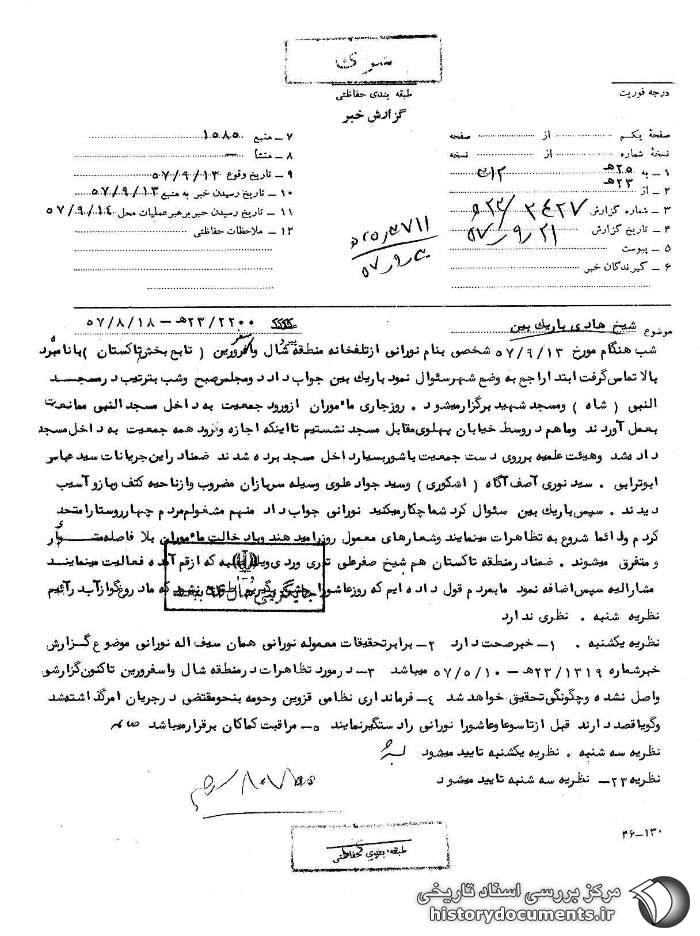 سری
طبقه بندی حفاظتی
درجه فوریت
گزارش خبر
صفحهٔ یکم از صفحه
نسخهٔ شماره از نسخه
۱ ـ به ۲۵ه‍ ۱۲
۲ ـ از ۲۳ه‍
۳ ـ شماره گزارش ۲۴۲۷/ ۲۳ه‍
۴ ـ تاریخ گزارش ۵۷/۹/۲۱
۵ ـ پیوست
۶ ـ گیرندگان خبر
۷ ـ منبع ۱۵۸۵
۸ ـ منشأ ـ
۹ ـ تاریخ وقوع ۵۷/۹/۱۳
۱۰ ـ تاریخ رسیدن خبر به منبع ۵۷/۹/۱۳
۱۱ ـ تاریخ رسیدن خبر برهبر عملیات محل ۵۷/۹/۱۴
۱۲ ـ ملاحظات حفاظتی
موضوع شیخ هادی باریك بین ۲۳/۲۲۰۰ه‍ ـ ۵۷/۸/۱۸
شب هنگام مورخ ۵۷/۹/۱۳ شخصی بنام نورانی از تلفخانه منطقه شال و اسفرورین ( تابع بخش تاکستان ) با نامبرده
بالا تماس گرفت ابتدا راجع به وضع شهر سئوال نمود باریك بین جواب داد دو مجلس صبح وشب بترتیب در مسجد
النبی ( شاه ) ومسجد شهید برگزار میشود . روز جاری مأموران از ورود جمعیت به داخل مسجد النبی ممانعت
بعمل آوردند وما هم در وسط خیابان پهلوی مقابل مسجد نشستیم تا اینکه اجازه ورود همه جمعیت به داخل مسجد
داده شد وهیئت علمیه بر روی دست جمعیت با شور بسیار داخل مسجد برده شدند ضمنا در این جریانات سید عباس
ابوترابی . سید نوری آصف آگاه ( اشکوری ) وسید جواد علوی وسیله سربازان مضروب واز ناحیه کتف وبازو آسیب
دیدند . سپس باریك بین سئوال کرد شما چکار میکنید نورانی جواب داد منهم مشغولم مردم چهار روستا را متحد
کردم ودائما شروع به تظاهرات مینمایند وشعارهای معمول روز را میدهند وبا دخالت مأموران بلا فاصله متواری
و متفرق میشوند . ضمنا در منطقه تاکستان هم شیخ صفرعلی که از قم آمده فعالیت مینمایند
مشارالیه سپس اضافه نمود ما بمردم قول داده ایم که روز عاشورا که ما دروغگو از آب در آئیم
جایگزینی
نظریه شنبه . نظری ندارد
نظریه یکشنبه . ۱ـ خبر صحت دارد ۲ـ برابر تحقیقات معموله نورانی همان سیف اله نورانی موضوع گزارش
خبر شماره ۲۳/۱۳۱۹ه‍ ـ ۵۷/۵/۱۰ میباشد ۳ـ در مورد تظاهرات در منطقه شال واسفرورین تاکنون گزارشی
واصل نشده وچگونگی تحقیق خواهد شد ۴ـ فرمانداری نظامی قزوین وحومه بنحو مقتضی در جریان امر گذاشته شد
وگویا قصد دارند قبل از تاسوعا وعاشورا نورانی را دستگیر نمایند ۵ـ مراقبت کماکان برقرار میباشد
نظریه سه شنبه . نظریه یکشنبه تایید میشود
نظریه ۲۳ـ نظریه سه شنبه تایید میشود
۳۶ـ۱۳۰
طبقه بندی حفاظتی
مرکز بررسی اسناد تاریخی
historydocuments.ir